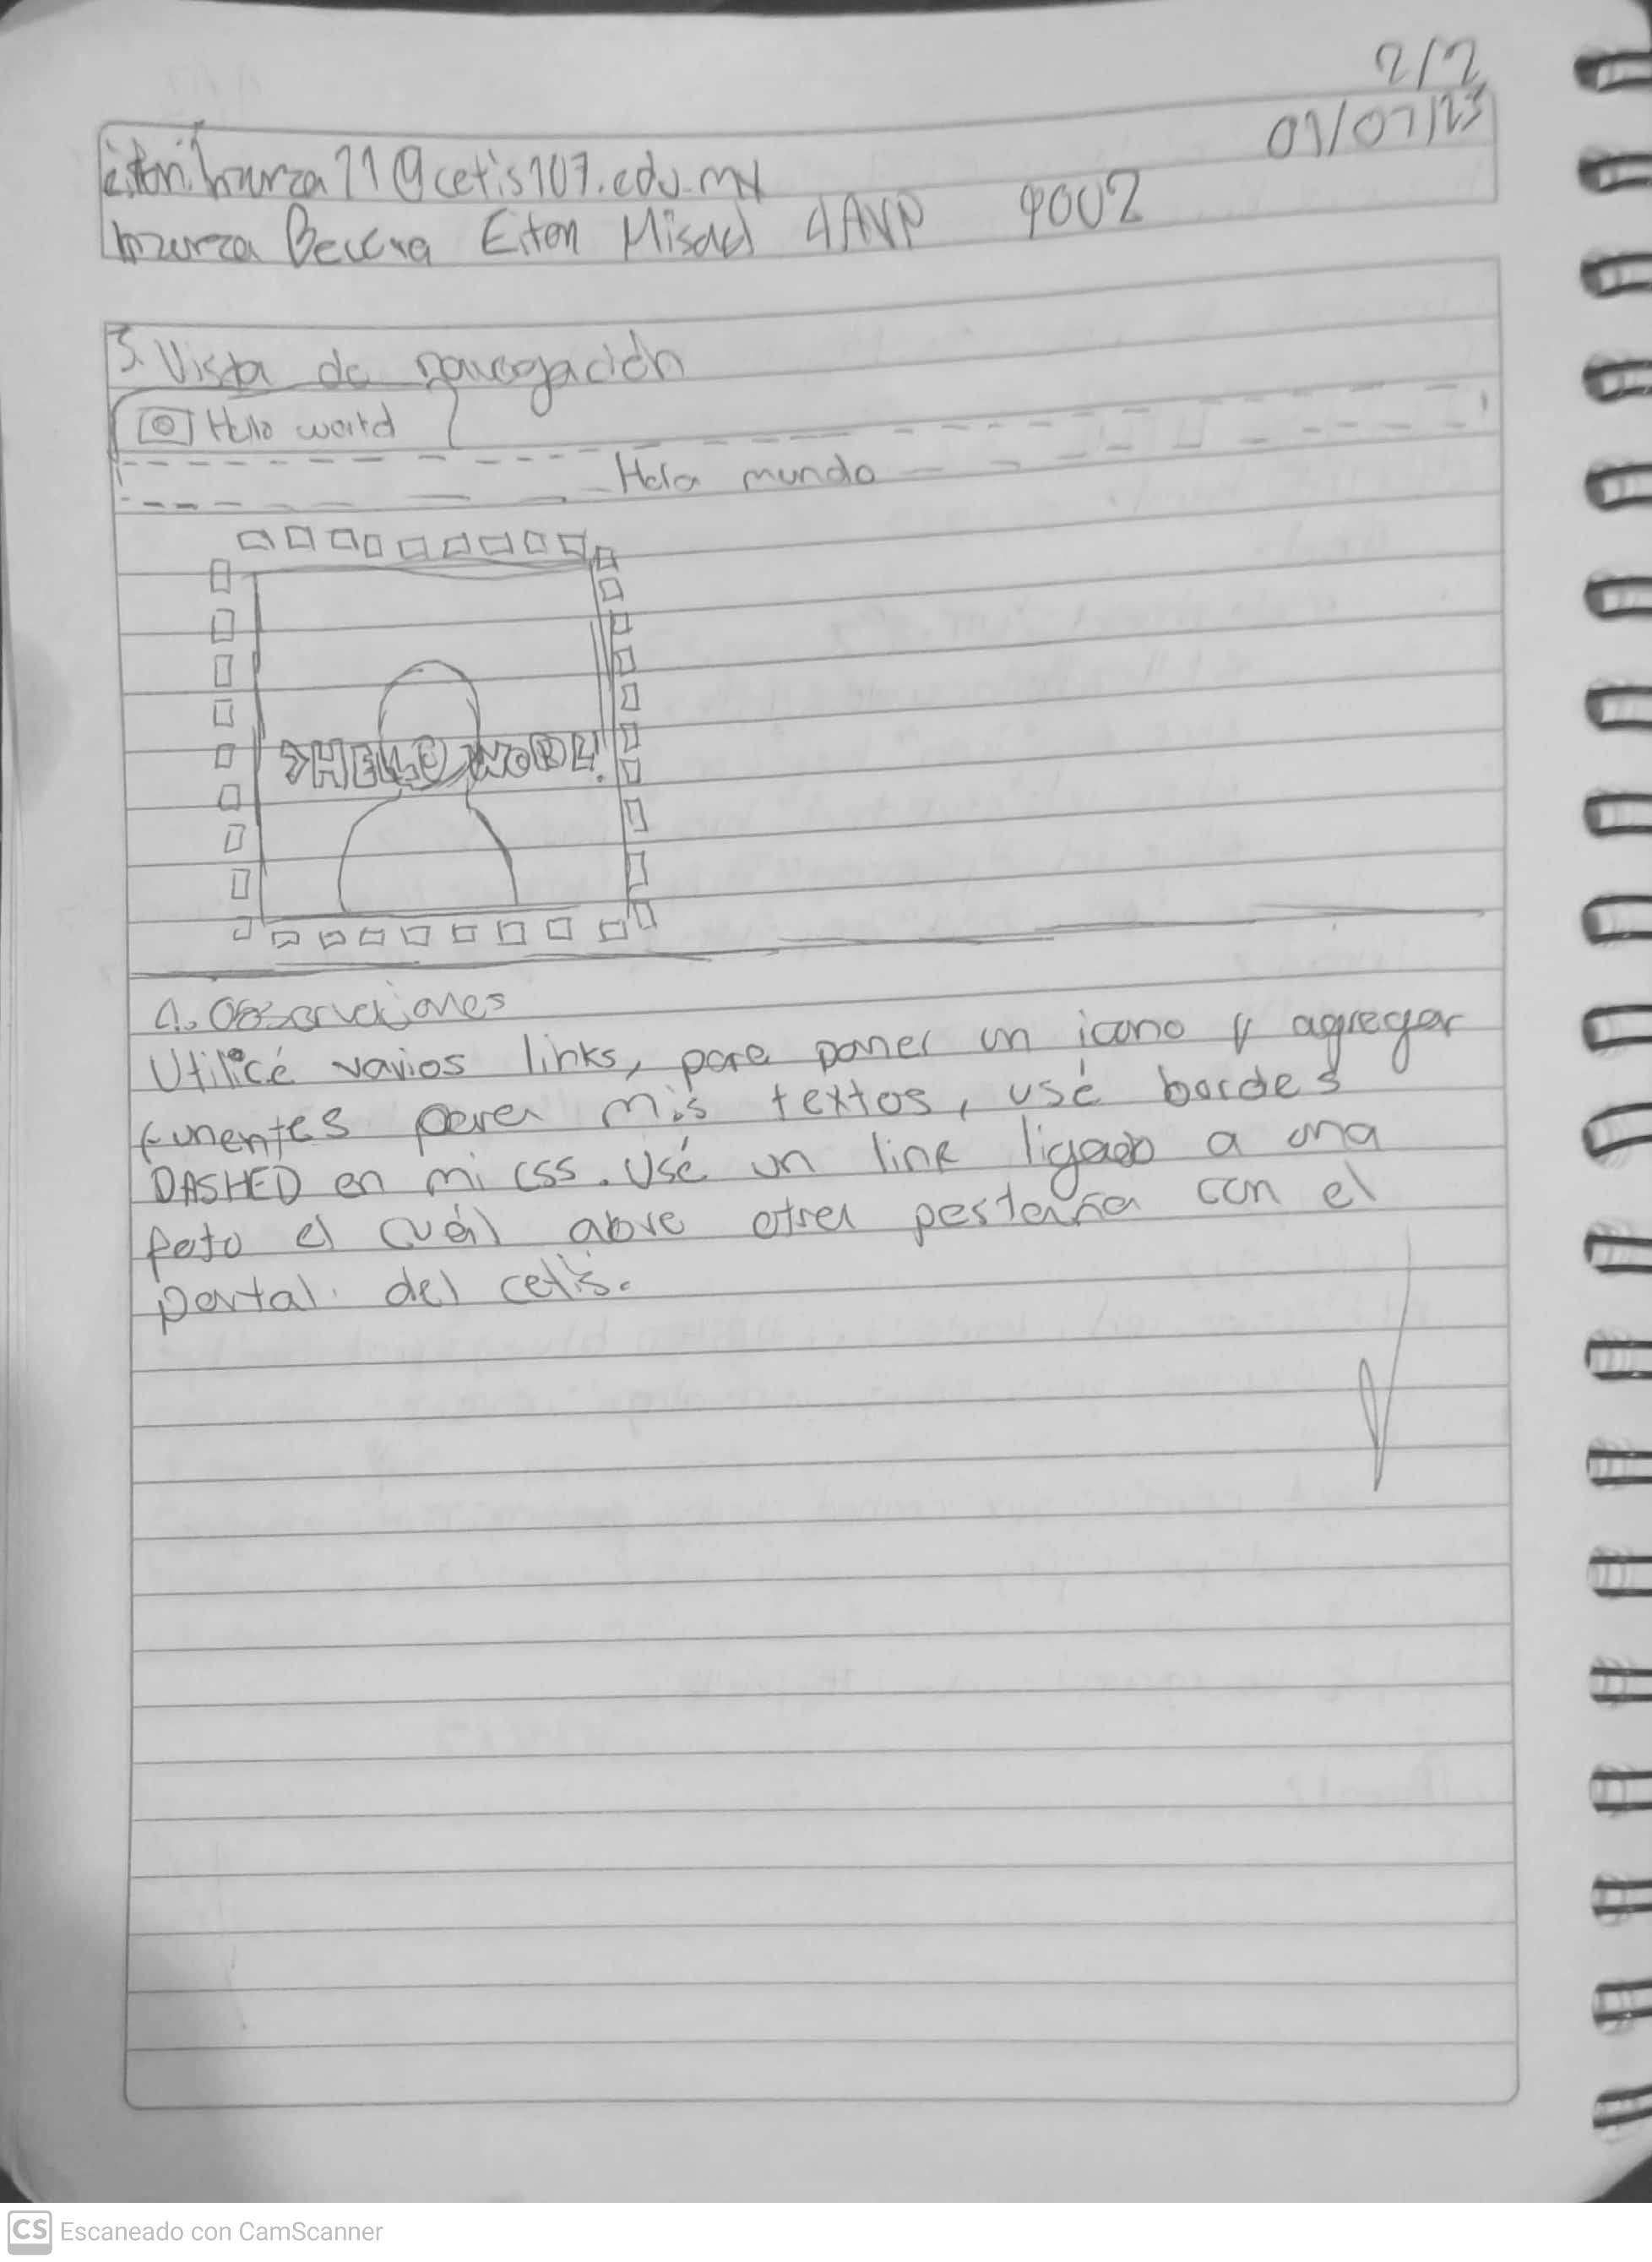 2/2
01/07/23
eiton.inzurza11@cetis107.edu.mx
Inzurza Becerra Eiton Misael 4AVP 9002
3. Vista de navegación
Hello world
Hola mundo
>HELLO WORL!
4. Observaciones
Utilicé varios links, para poner un icono y agregar
funentes para mis textos, usé bordes
DASHED en mi css. Usé un link ligado a una
foto el cuál abre otra pestaña con el
portal del cetis.
CS Escaneado con CamScanner